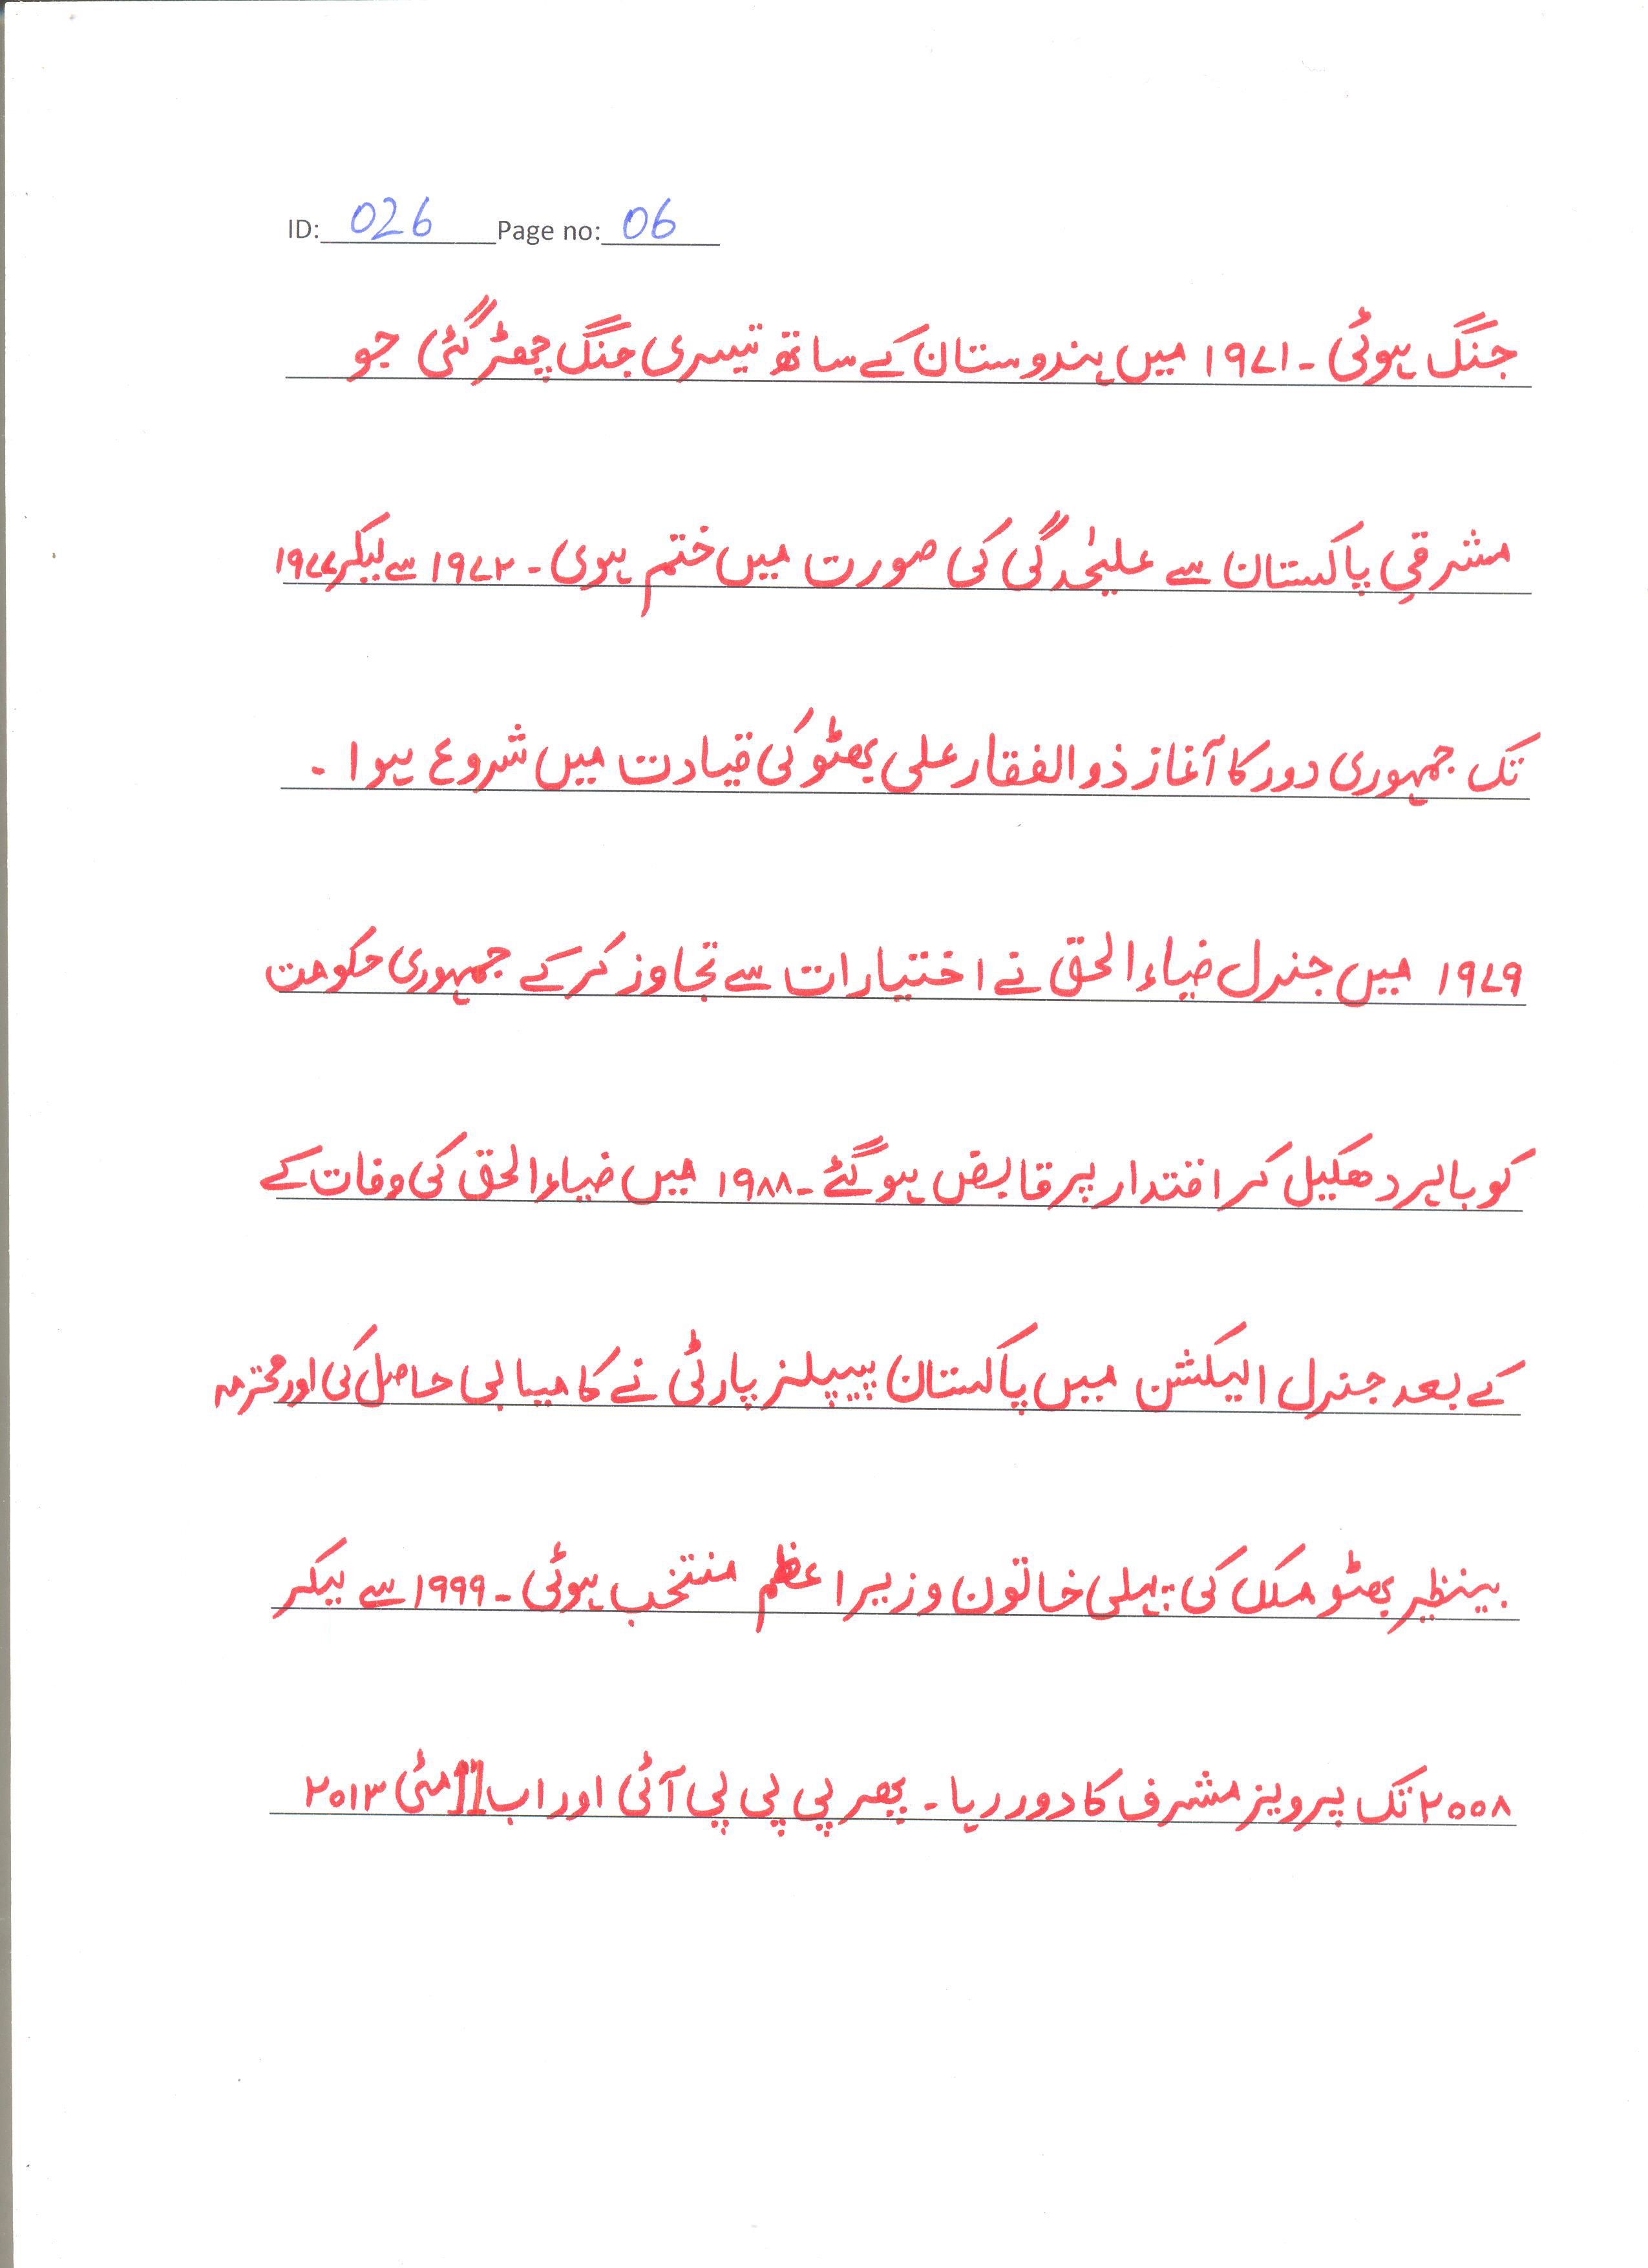 ID: 026 Page no: 06
جنگ ہوئی ۔ ۱۹۷۱ میں ہندوستان کے ساتھ تیسری جنگ چھڑ گئی جو
مشرقیِ پاکستان سے علیٰحدگی کی صورت میں ختم ہوی ۔ ۱۹۷۲ سے لیکر ۱۹۷۷
تک جمہوری دور کا آغاز ذوالفقار علی بھٹو کی قیادت میں شروع ہوا ۔
۱۹۷۹ میں جنرل ضیاءالحق نے اختیارات سے تجاوز کر کے جمہوری حکومت
کو باہر دھکیل کر اقتدار پر قابض ہو گئے ۔ ۱۹۸۸ میں ضیاءالحق کی وفات کے
کے بعد جنرل الیکشن میں پاکستان پیپلز پارٹی نے کامیابی حاصل کی اور محترمہ
بینظیر بھٹو ملک کی پہلی خاتون وزیراعظم منتخب ہوئی ۔ ۱۹۹۹ سے لیکر
۲۰۰۸ تک پرویز مشرف کا دور رہا ۔ پھر پی پی پی آئی اور اب 11 مئی ۲۰۱۳